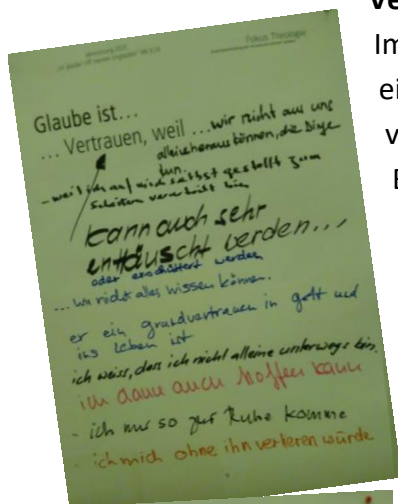 Ve
Im
ei
v
E
Jahreslosung 2020
"Ich glaube; hilf meinem Unglauben!" Mk 9,24
Fokus Theologie
Glaube ist...
... Vertrauen, weil ... wir nicht aus uns
alleine heraus können, die Dinge
tun.
- weil ich auf mich selbst gestellt zum
Scheitern verurteilt bin
kann auch sehr
enttäuscht werden...
oder erschüttert werden
... wir nicht alles wissen können.
er ein grundvertrauen in gott und
ins leben ist
ich weiss, dass ich nicht alleine unterwegs bin.
ich dann auch hoffen kann
- ich nur so zur Ruhe komme
- ich mich ohne ihn verlieren würde